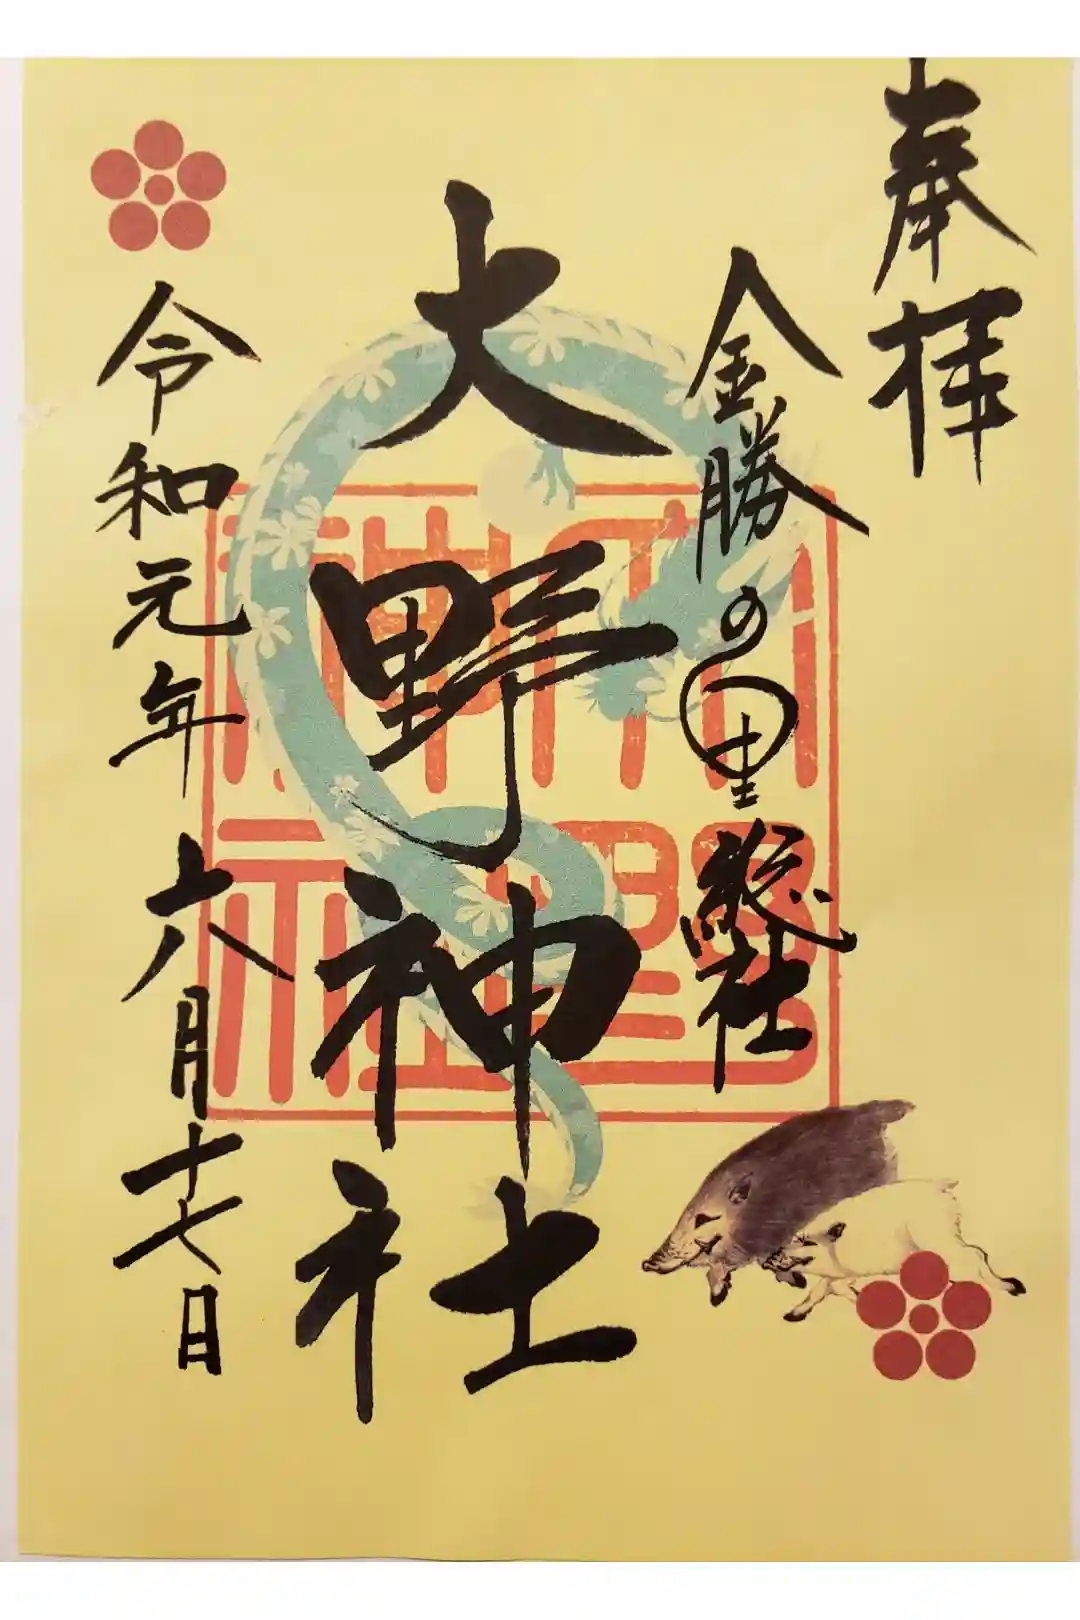 奉拝
金勝の里 総社
大野神社
令和元年六月十七日
大野神社